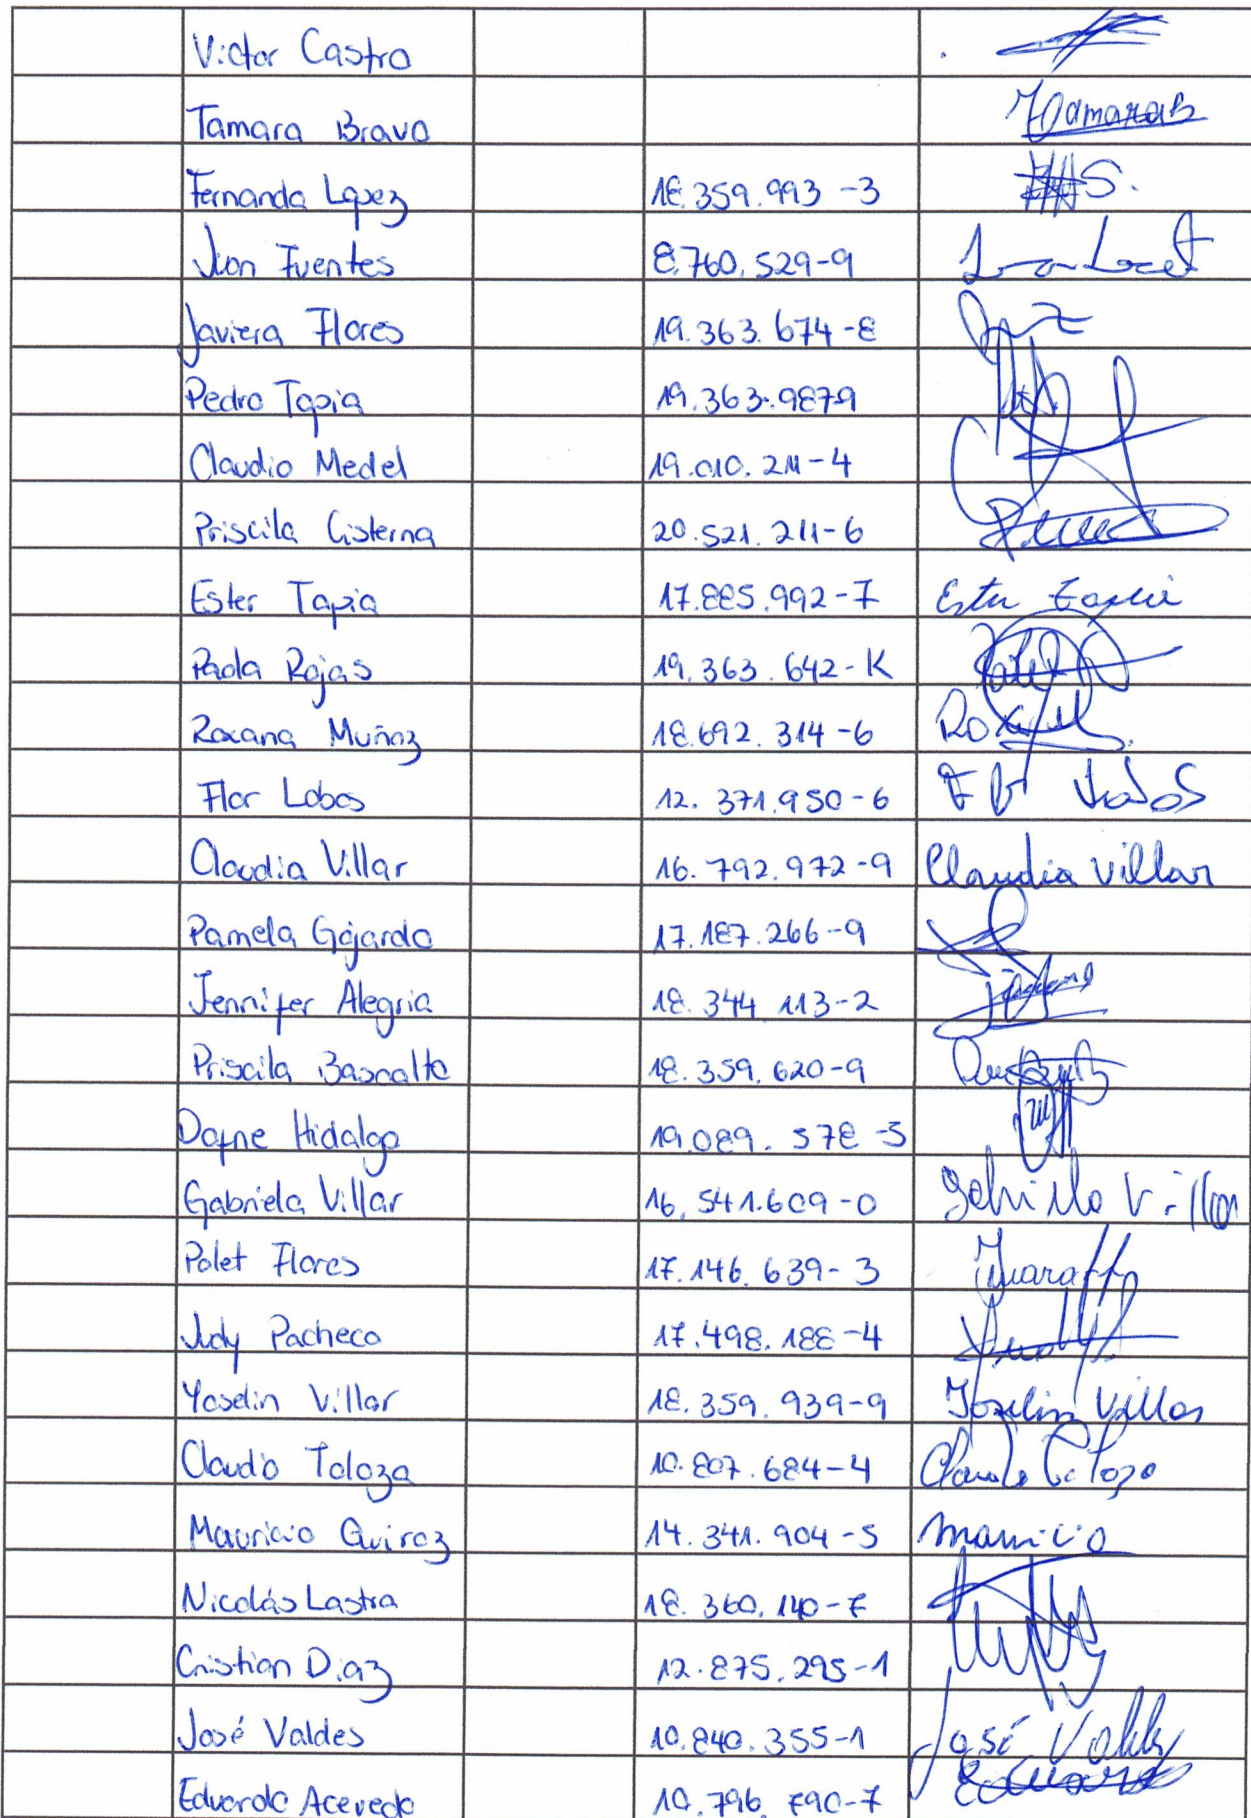 Victor Castro
Tamara Bravo Tamarab
Fernanda Lopez 18.359.993-3
Juan Fuentes 8.760.529-9
Javiera Flores 19.363.674-8
Pedro Tapia 19.363.9879
Claudio Medel 19.010.211-4
Priscila Cisterna 20.521.211-6
Ester Tapia 17.885.992-7 Ester Tapia
Paola Rojas 19.363.642-K
Roxana Muñoz 18.692.314-6
Flor Lobos 12.371.950-6
Claudia Villar 16.792.972-9 Claudia Villar
Pamela Gajardo 17.187.266-9
Jennifer Alegria 18.344 113-2
Priscila Basoalto 18.359.620-9
Dafne Hidalgo 19.089.578-5
Gabriela Villar 16.541.609-0
Polet Flores 17.146.639-3
Judy Pacheco 17.498.188-4
Yoselin Villar 18.359.939-9 Joselin Villar
Claudio Toloza 10.807.684-4
Mauricio Quiroz 14.341.904-5 mauricio
Nicolás Lastra 18.360.140-7
Cristian Diaz 12.875.295-1
José Valdes 10.840.355-1 José Valdes
Eduardo Acevedo 10.796.790-7